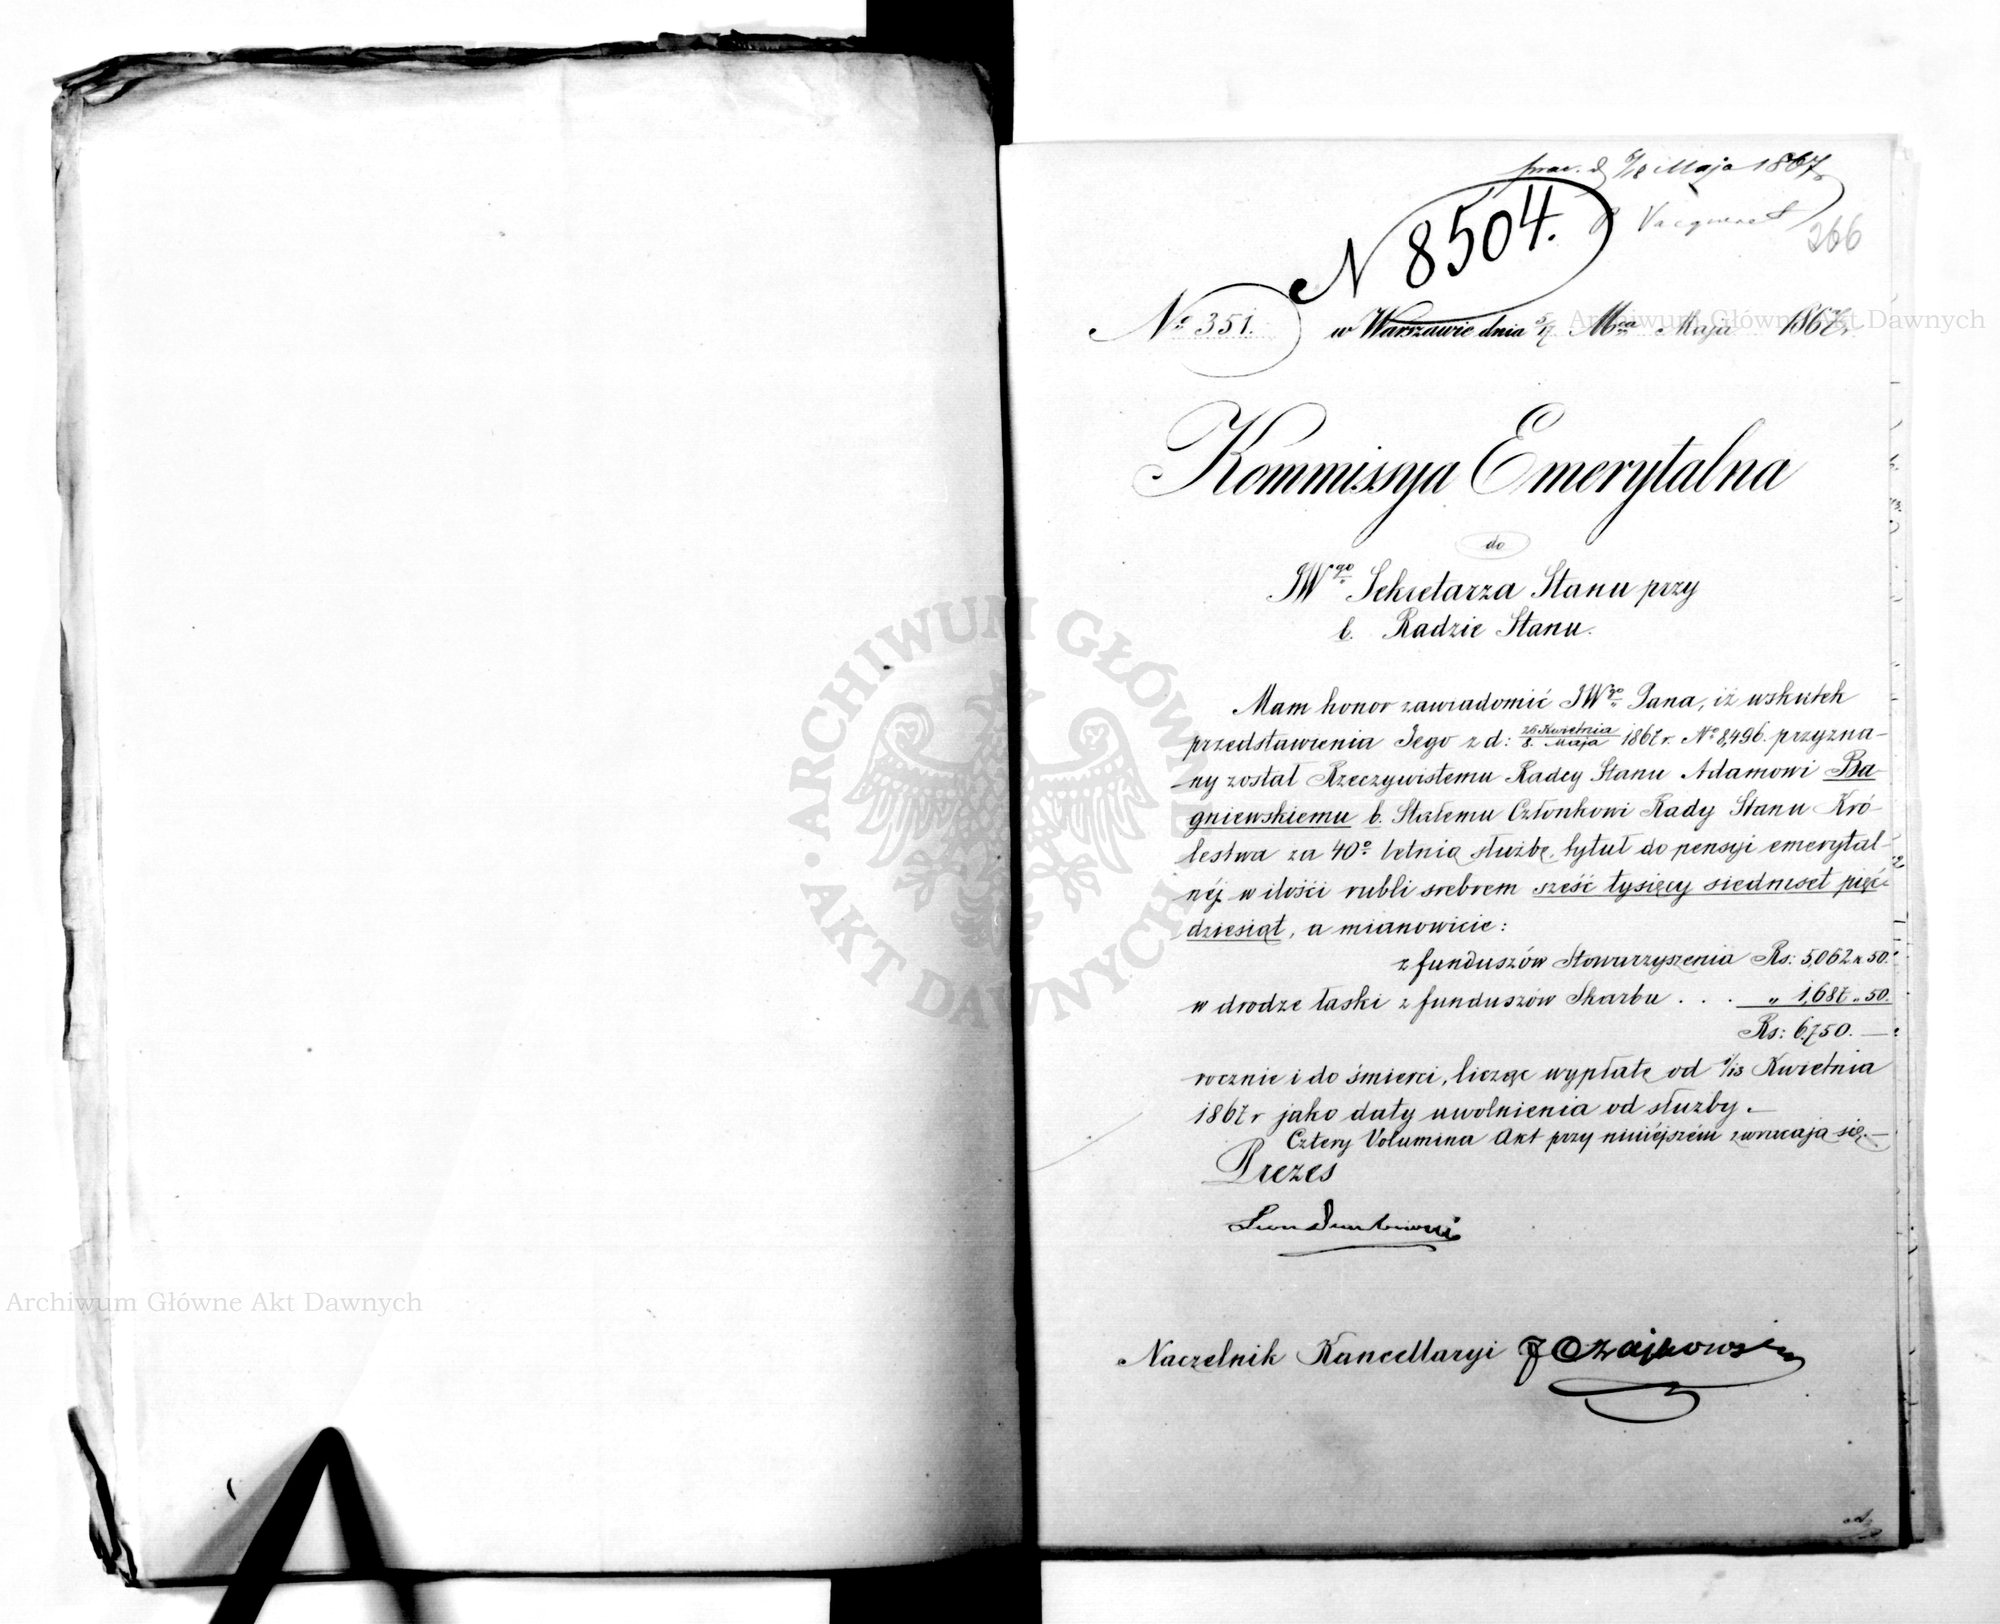 prac. d 6/18 Maja 1867
N 8504.
266
No 351. w Warszawie dnia 5/17 Mca Maja 1867 r.
Kommissya Emerytalna
do
JWgo Sekretarza Stanu przy
b. Radzie Stanu.
Mam honor zawiadomić JWgo Pana, iż wskutek
przedstawienia Jego z d: 26 Kwietnia / 8. Maja 1867 r. No 8,496. przyzna-
ny został Rzeczywistemu Radcy Stanu Adamowi Ba-
gniewskiemu b. Stałemu Członkowi Rady Stanu Kró-
lestwa za 40o letnią służbę, tytuł do pensyi emerytal-
néj w ilości rubli srebrem sześć tysięcy siedmset pięć-
dziesiąt, a mianowicie:
z funduszów Stowarzyszenia Rs: 5,062 k 50.
w drodze łaski z funduszów Skarbu . . . „ 1,687 „ 50.
Rs: 6,750. —
rocznie i do śmierci, licząc wypłatę od 1/13 Kwietnia
1867 r jako daty uwolnienia od służby. —
Cztery Volumina Akt przy niniéjszém zwracają się. —
Prezes
Naczelnik Kancellaryi J Czajkowski
Archiwum Główne Akt Dawnych
Archiwum Główne Akt Dawnych
ARCHIWUM GŁÓWNE AKT DAWNYCH